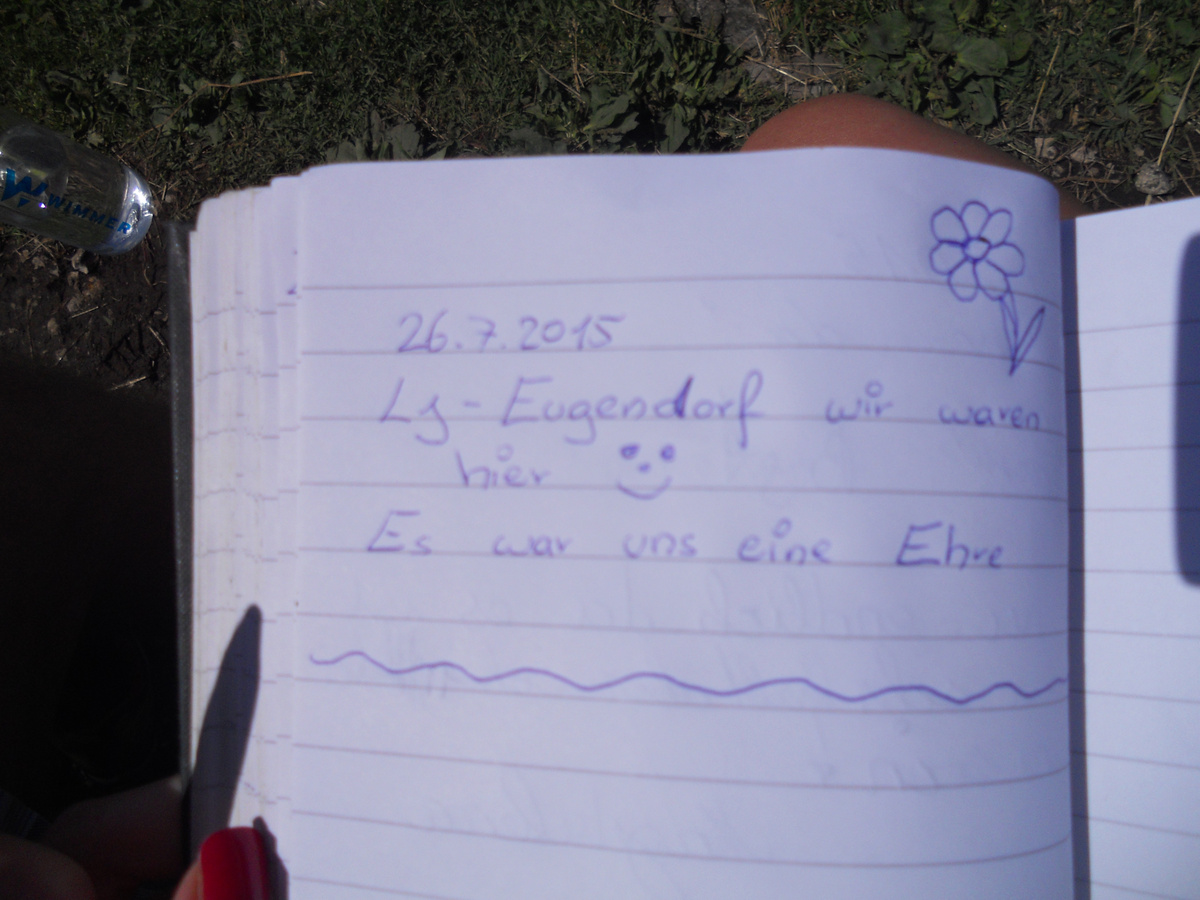 WIMMER
26.7.2015
Lj - Eugendorf wir waren
hier
Es war uns eine Ehre